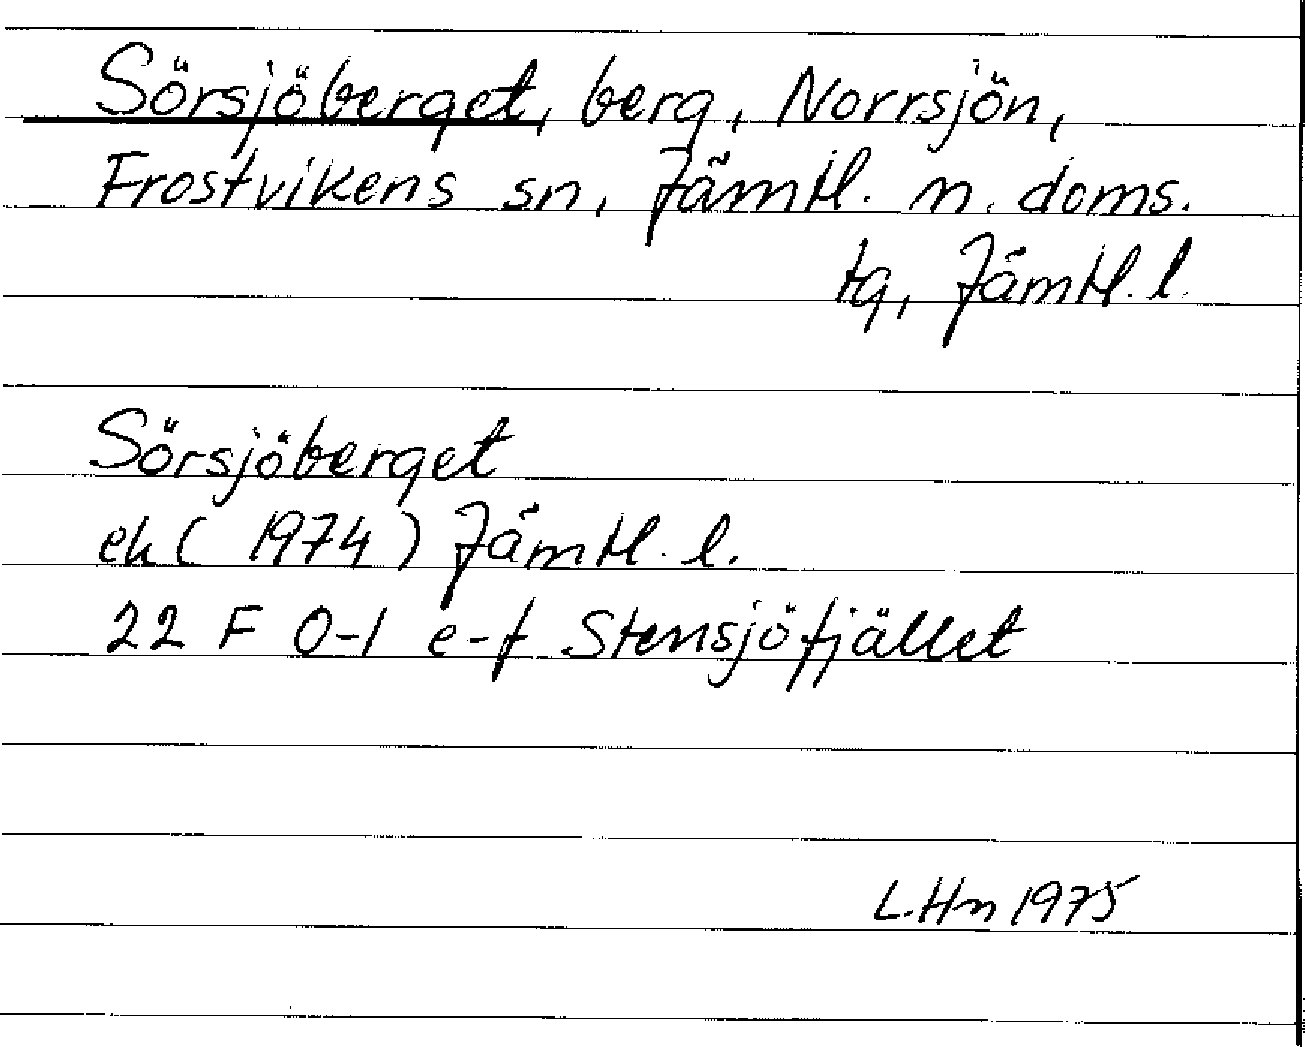 Sörsjöberget, berg, Norrsjön,
Frostvikens sn, Jämtl. n. doms.
tg, Jämtl. l.
Sörsjöberget
ek ( 1974 ) Jämtl. l.
22 F 0-1 e-f Stensjöfjället
L.Hn 1975